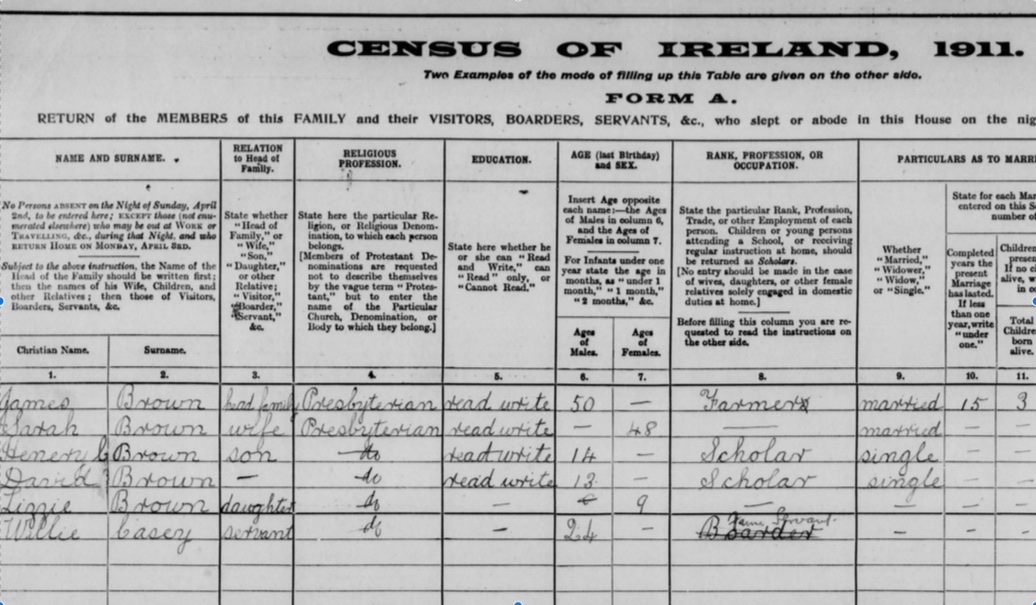 CENSUS OF IRELAND, 1911.
Two Examples of the mode of filling up this Table are given on the other side.
FORM A.
RETURN of the MEMBERS of this FAMILY and their VISITORS, BOARDERS, SERVANTS, &c., who slept or abode in this House on the nig
NAME AND SURNAME.
No Persons ABSENT on the Night of Sunday, April
2nd, to be entered here; EXCEPT those (not enu-
merated elsewhere) who may be out at WORK or
TRAVELLING, &c., during that Night, and who
RETURN HOME ON MONDAY, APRIL 3RD.
Subject to the above instruction, the Name of the
Head of the Family should be written first;
then the names of his Wife, Children, and
other Relatives; then those of Visitors,
Boarders, Servants, &c.
Christian Name.
Surname.
RELATION
to Head of
Family.
State whether
"Head of
Family," or
"Wife,"
"Son,"
"Daughter,"
or other
Relative;
"Visitor,"
"Boarder,"
"Servant,"
&c.
RELIGIOUS
PROFESSION.
State here the particular Re-
ligion, or Religious Denom-
ination, to which each person
belongs.
[Members of Protestant De-
nominations are requested
not to describe themselves
by the vague term "Protes-
tant," but to enter the
name of the Particular
Church, Denomination, or
Body to which they belong.]
EDUCATION.
State here whether he
or she can "Read
and Write," can
"Read" only, or
"Cannot Read."
AGE (last Birthday)
and SEX.
Insert Age opposite
each name:—the Ages
of Males in column 6,
and the Ages of
Females in column 7.
For Infants under one
year state the age in
months, as "under 1
month," "1 month,"
"2 months," &c.
Ages
of
Males.
Ages
of
Females.
RANK, PROFESSION, OR
OCCUPATION.
State the particular Rank, Profession,
Trade, or other Employment of each
person. Children or young persons
attending a School, or receiving
regular instruction at home, should
be returned as Scholars.
[No entry should be made in the case
of wives, daughters, or other female
relatives solely engaged in domestic
duties at home.]
Before filling this column you are re-
quested to read the instructions on
the other side.
PARTICULARS AS TO MARRI
Whether
"Married,"
"Widower,"
"Widow,"
or "Single."
State for each Mar
entered on this S
number o
Completed
years the
present
Marriage
has lasted.
If less
than one
year, write
"under
one."
Children
presen
If no c
alive, w
in co
Total
Childre
born
alive.
1. 2. 3. 4. 5. 6. 7. 8. 9. 10. 11.
James Brown head family Presbyterian read write 50 — Farmer married 15 3
Sarah Brown wife Presbyterian read write — 48 — married
Henery Brown son do read write 14 — Scholar single
David Brown — do read write 13 — Scholar single
Lizzie Brown daughter do — 9 — — —
Willie Casey servant do — 24 — Boarder Farm Servant — —